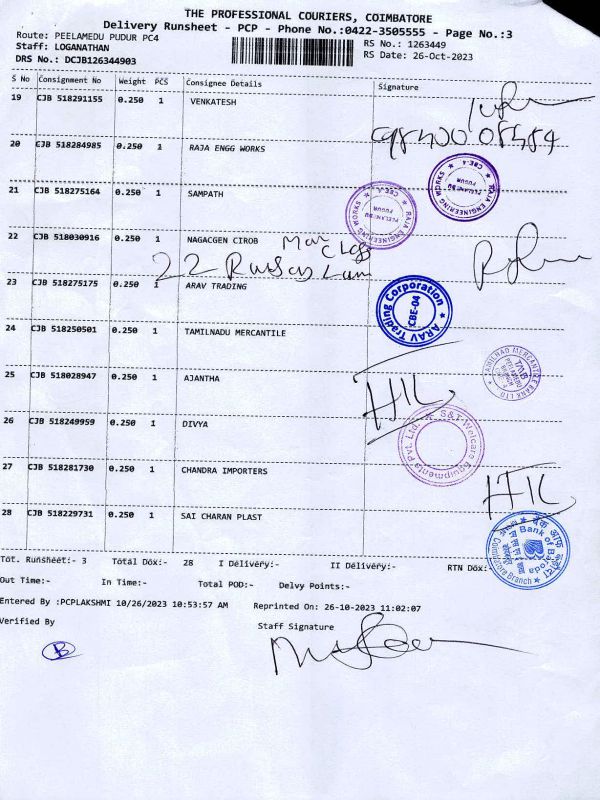 THE PROFESSIONAL COURIERS, COIMBATORE
Delivery Runsheet - PCP - Phone No.:0422-3505555 - Page No.:3
Route: PEELAMEDU PUDUR PC4
RS No.: 1263449
Staff: LOGANATHAN
RS Date: 26-Oct-2023
DRS No.: DCJB126344903
S No Consignment No Weight PCS Consignee Details Signature
19 CJB 518291155 0.250 1 VENKATESH
20 CJB 518284985 0.250 1 RAJA ENGG WORKS
RAJA ENGINEERING WORKS PEELAMEDU PUDUR CBE-4
21 CJB 518275164 0.250 1 SAMPATH
RAJA ENGINEERING WORKS PEELAMEDU PUDUR CBE-4
22 CJB 518030916 0.250 1 NAGACGEN CIROB
22
23 CJB 518275175 0.250 1 ARAV TRADING
ARAV Trading Corporation CBE-04
24 CJB 518250501 0.250 1 TAMILNADU MERCANTILE
TAMILNAD MERCANTILE BANK LTD TMB
25 CJB 518028947 0.250 1 AJANTHA
26 CJB 518249959 0.250 1 DIVYA
S&T Welcare Equipments Pvt. Ltd.
27 CJB 518281730 0.250 1 CHANDRA IMPORTERS
28 CJB 518229731 0.250 1 SAI CHARAN PLAST
बैंक ऑफ़ बड़ौदा Bank of Baroda Coimbatore Branch
Tot. Runsheet:- 3 Total Dox:- 28 I Delivery:- II Delivery:- RTN Dox:-
Out Time:- In Time:- Total POD:- Delvy Points:-
Entered By :PCPLAKSHMI 10/26/2023 10:53:57 AM Reprinted On: 26-10-2023 11:02:07
Verified By Staff Signature